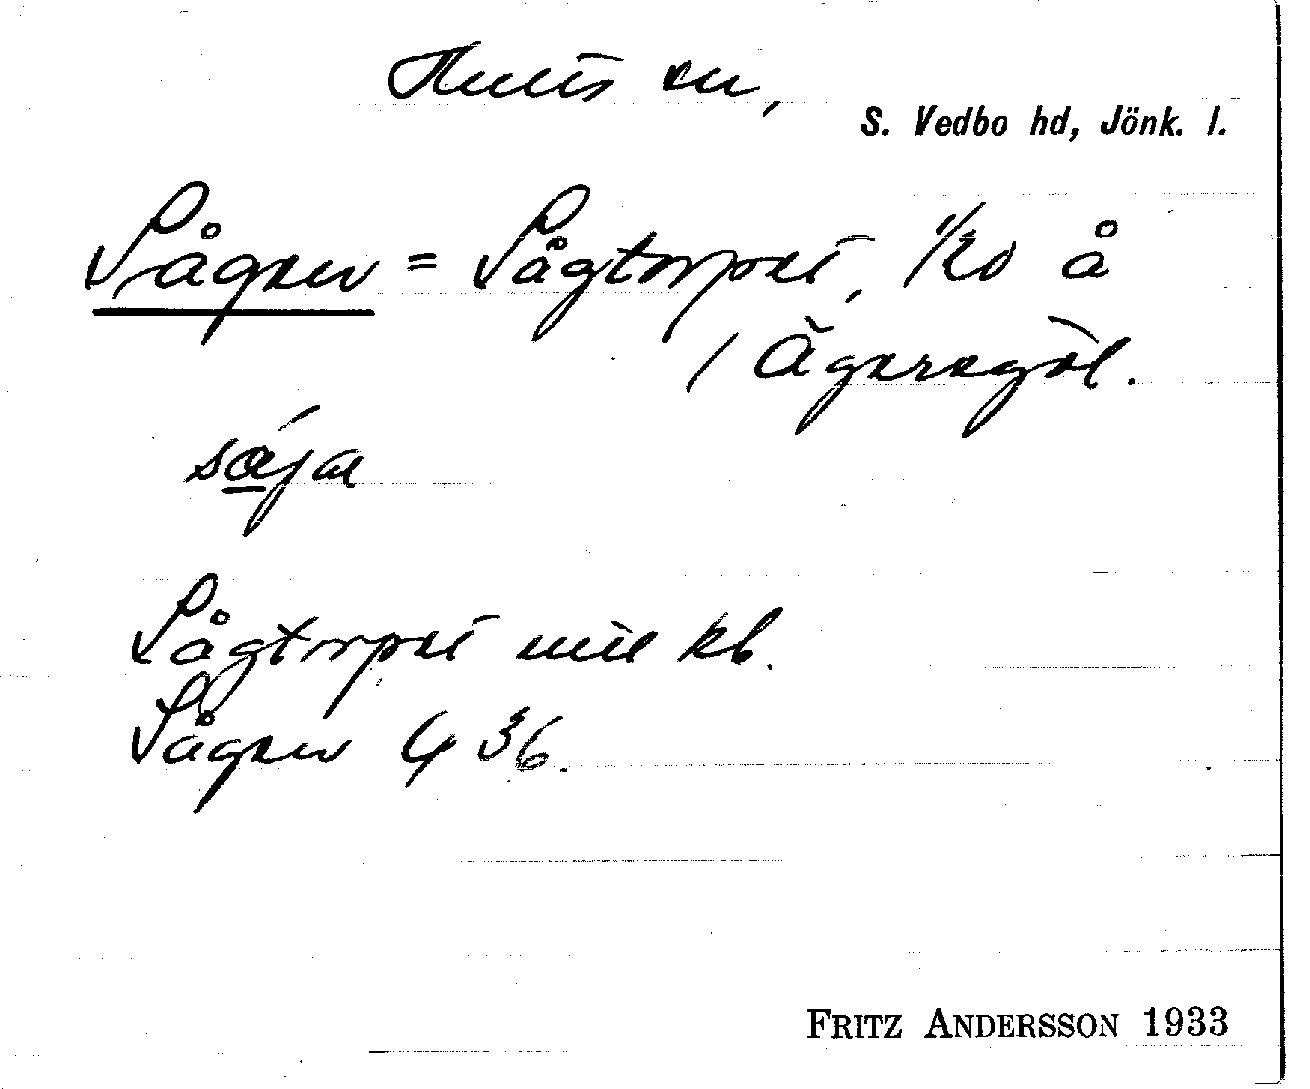 Hults sn,
S. Vedbo hd, Jönk. l.
Sågen = Sågtorpet, 1/20 å
/ Ågeregöl.
Sågtorpet
Sågen G 36.
FRITZ ANDERSSON 1933